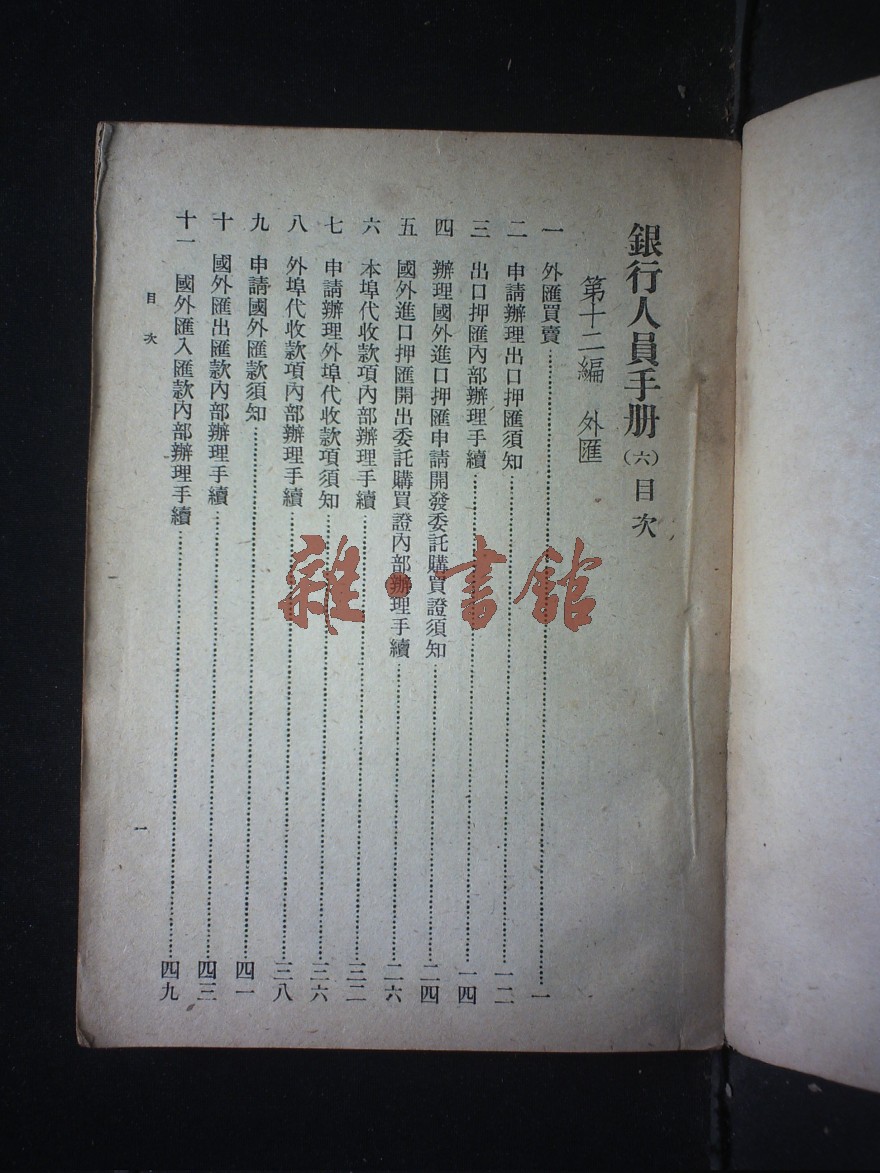 銀行人員手册(六)目次
第十二編 外匯
一 外匯買賣……一
二 申請辦理出口押匯須知……一二
三 出口押匯內部辦理手續……一四
四 辦理國外進口押匯申請開發委託購買證須知……二四
五 國外進口押匯開出委託購買證內部辦理手續……二六
六 本埠代收款項內部辦理手續……三二
七 申請辦理外埠代收款項須知……三六
八 外埠代收款項內部辦理手續……三八
九 申請國外匯款須知……四一
十 國外匯出匯款內部辦理手續……四三
十一 國外匯入匯款內部辦理手續……四九
目次
一
雜·書館